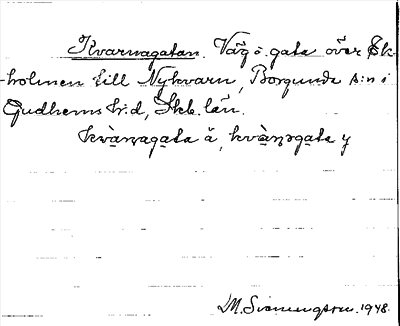 Kvarnagatan. Väg o. gata över Ek-
holmen till Nykvarn, Borgunda s:n i
Gudhems h:d, Skb. län.
kvàṇagata ä, kvàṇəgata y
M. Svenungson. 1948.